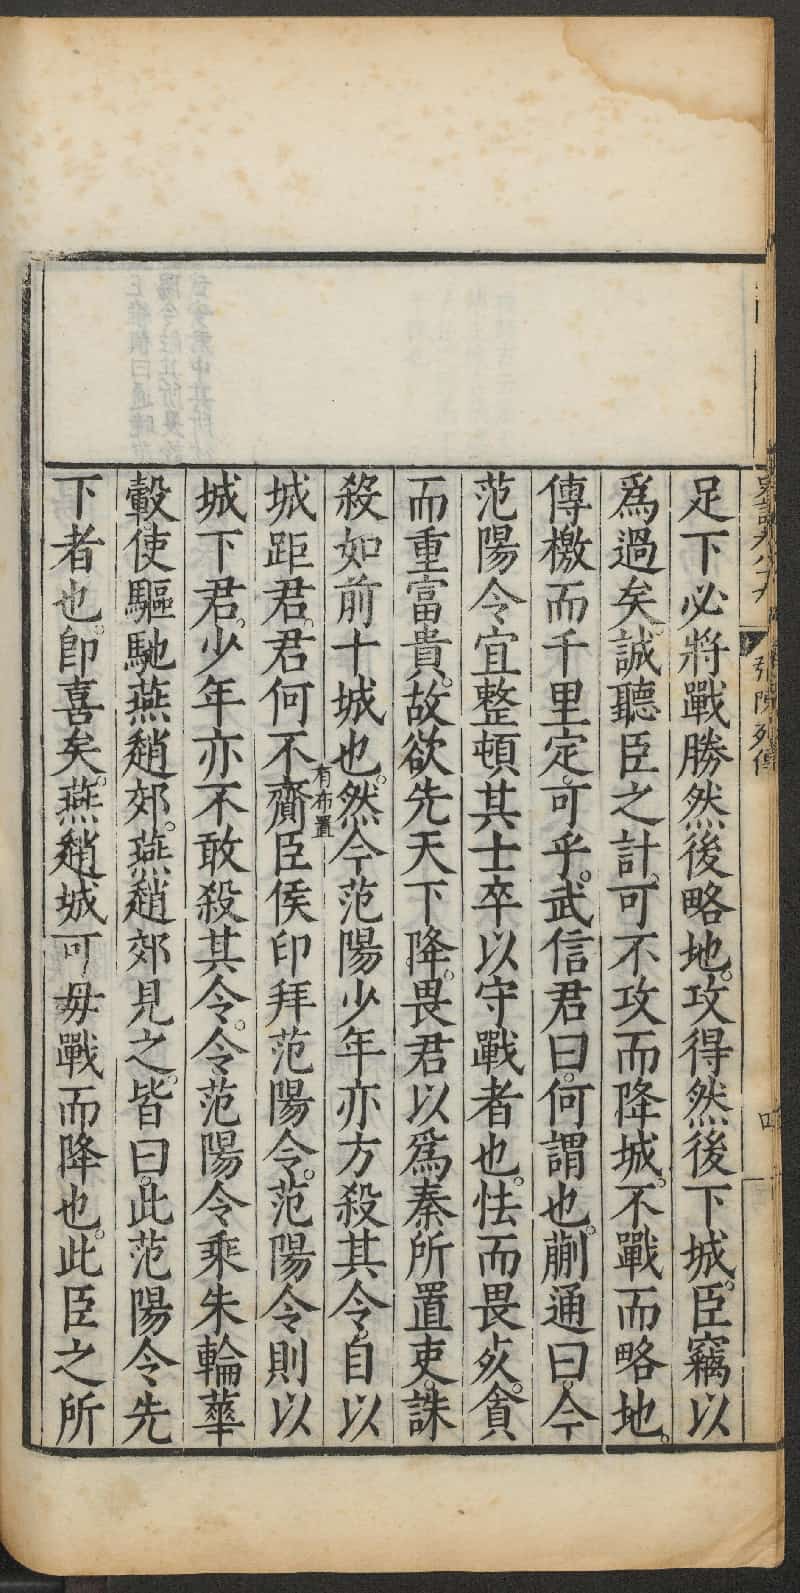 足下必將戰勝然後略地。攻得然後下城。臣竊以
爲過矣。誠聽臣之計。可不攻而降城。不戰而略地。
傳檄而千里定。可乎。武信君曰。何謂也。蒯通曰。今
范陽令宜整頓其士卒以守戰者也。怯而畏死。貪
而重富貴。故欲先天下降。畏君以爲秦所置吏。誅
殺如前十城也。然今范陽少年亦方殺其令。自以
有布置
城距君。君何不齎臣侯印拜范陽令。范陽令則以
城下君。少年亦不敢殺其令。令范陽令乘朱輪華
轂。使驅馳燕趙郊。燕趙郊見之。皆曰。此范陽令先
下者也。卽喜矣。燕趙城可毋戰而降也。此臣之所
史記卷八十九
張陳列傳